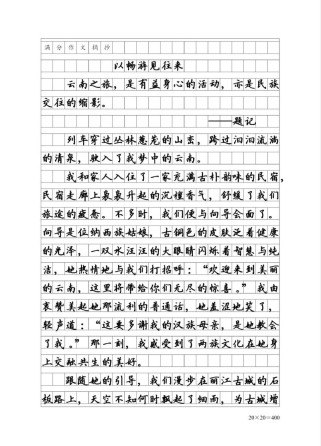 满分作文摘抄
以畅游见往来
云南之旅，是有益身心的活动，亦是民族
交往的缩影。
——题记
列车穿过丛林葱茏的山峦，跨过汩汩流淌
的清泉，驶入了我梦中的云南。
我和家人入住了一家充满古朴韵味的民宿，
民宿走廊上袅袅升起的沉檀香气，舒缓了我们
旅途的疲惫。不多时，我们便与向导会面了。
向导是位纳西族姑娘，古铜色的皮肤泛着健康
的光泽，一双水汪汪的大眼睛闪烁着智慧与纯
洁，她热情地与我们打招呼：“欢迎来到美丽
的云南，这里将带给你们无尽的惊喜。”我由
衷赞美起她那流利的普通话，她羞涩地笑了，
轻声道：“这要多谢我的汉族母亲，是她教会
了我。”那一刻，我感受到了两族文化在她身
上交融共生的美好。
跟随她的引导，我们漫步在丽江古城的石
板路上，天空不知何时飘起了细雨，为古城增
20×20=400